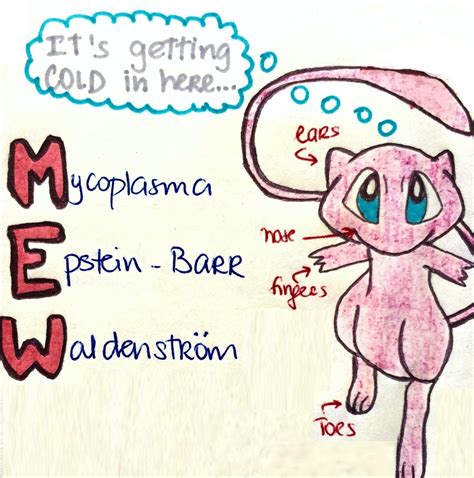 It's getting
COLD in here...
ears
Mycoplasma
nose
Epstein-BARR
fingers
Waldenström
Toes